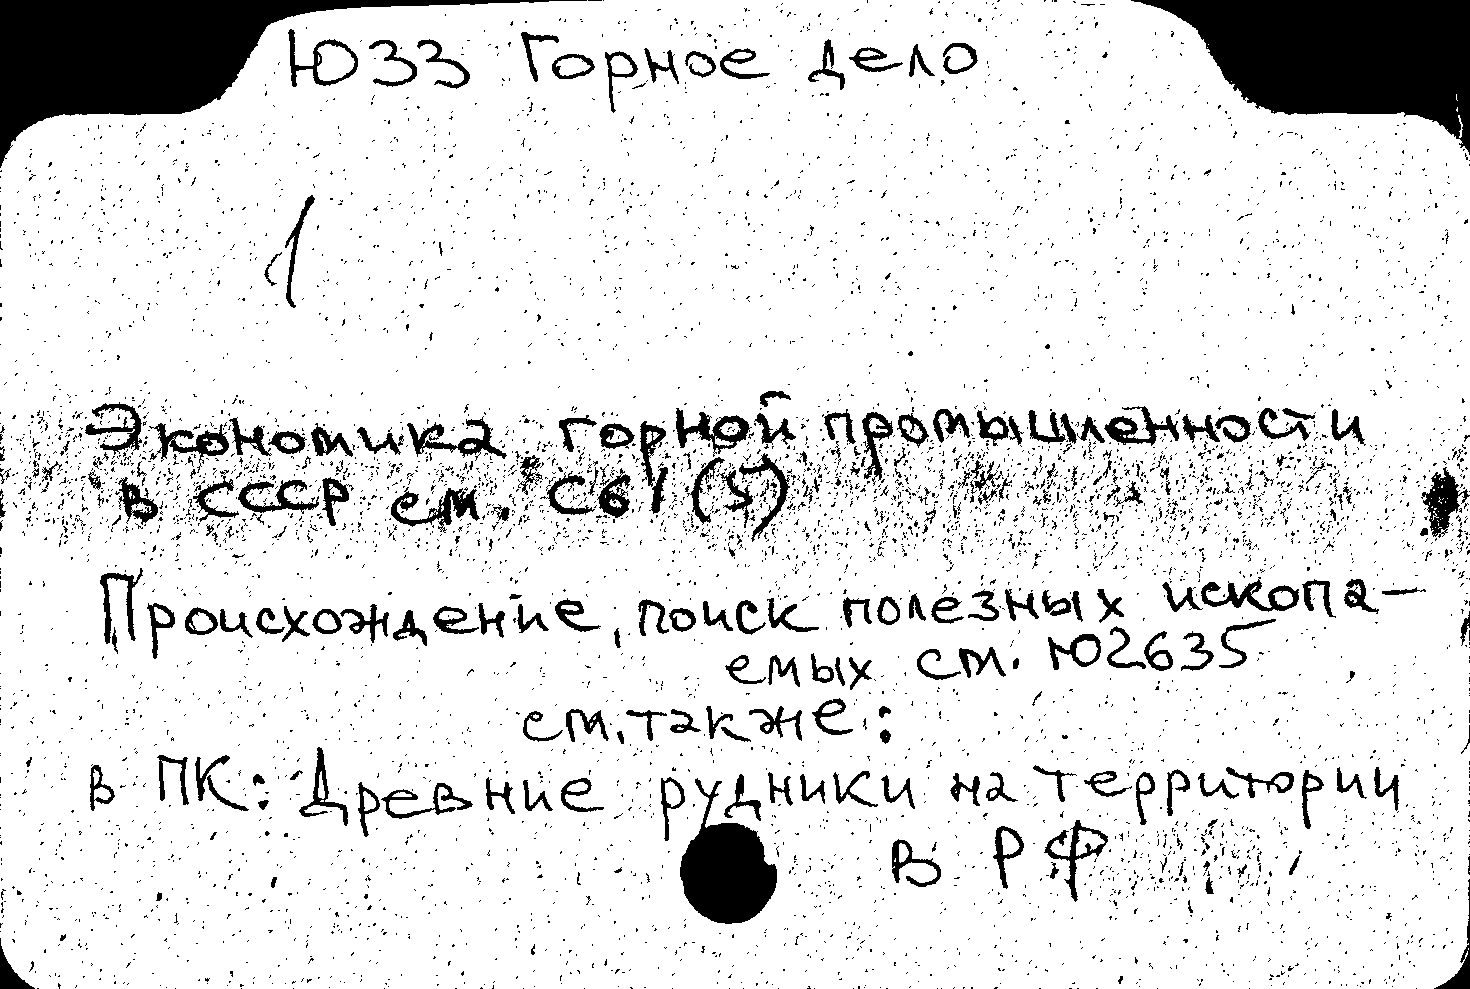 Ю33 Горное дело
1
Экономика горной промышленности
в СССР см. С61(5)
Происхождение, поиск полезных ископа-
емых см. Ю2635
см. также:
в ПК: Древние рудники на территории
в РФ